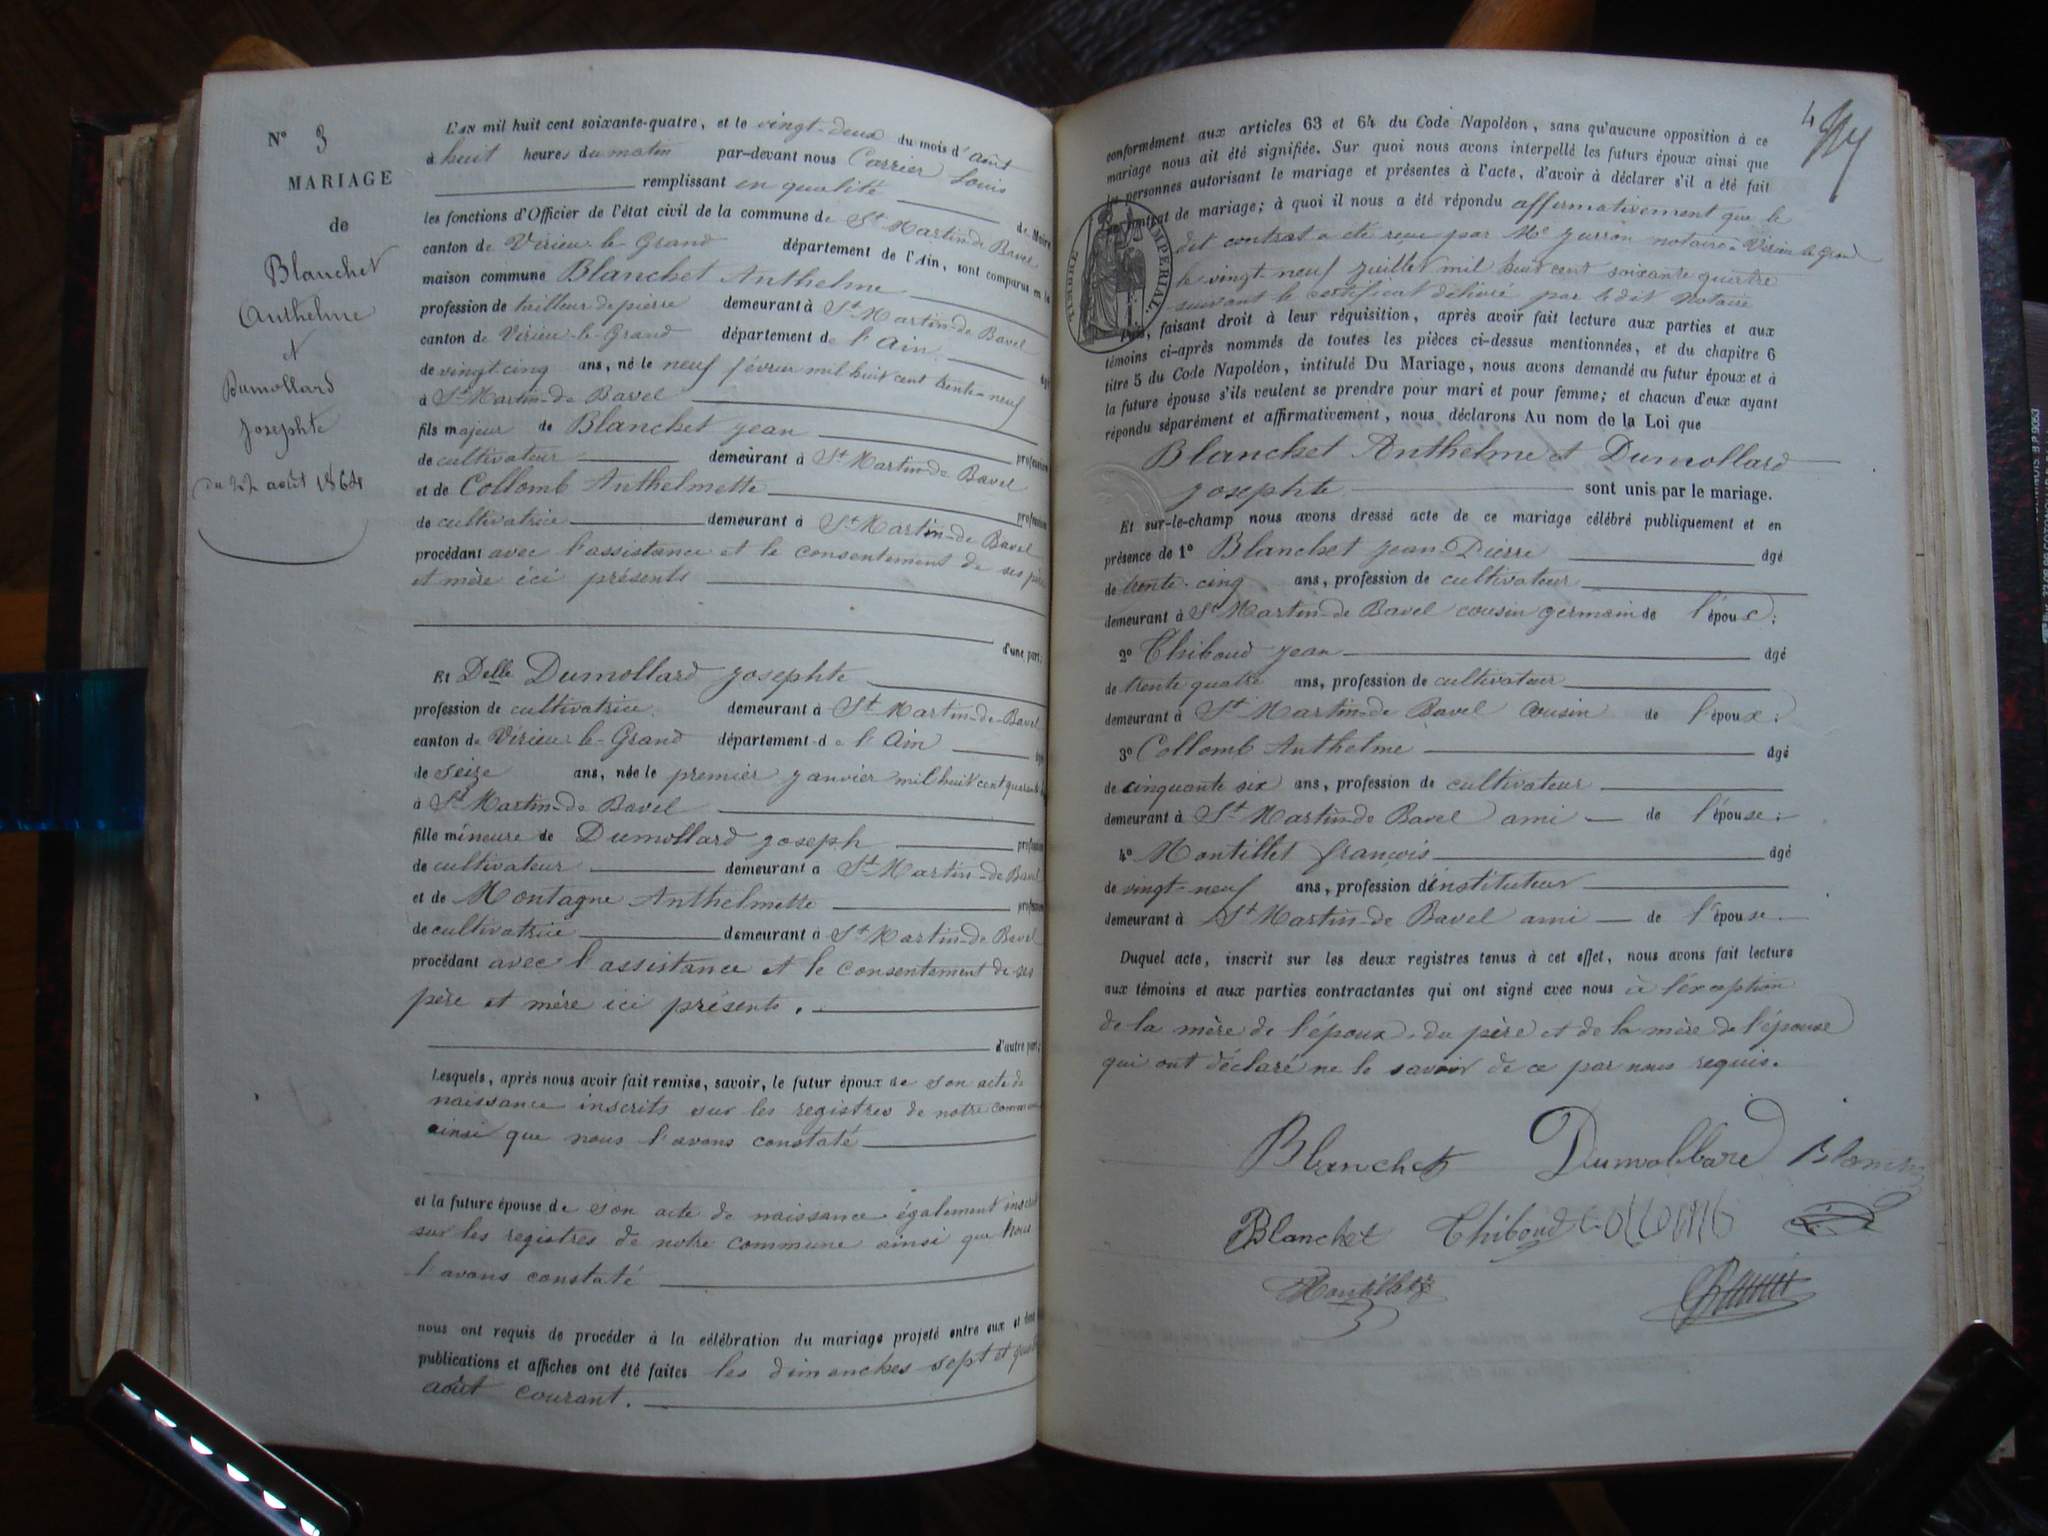 N° 3
MARIAGE
de
Blanchet
Anthelme
et
Dumollard
Josephte
du 22 août 1864
L'AN mil huit cent soixante-quatre, et le vingt-deux du mois d'août
à huit heures du matin par-devant nous Carrier Louis
remplissant en qualité de Maire
les fonctions d'Officier de l'état civil de la commune de St Martin-de Bavel
canton de Virieu-le-Grand département de l'Ain, sont comparus en la
maison commune Blanchet Anthelme
profession de tailleur de pierre demeurant à St Martin-de Bavel
canton de Virieu-le-Grand département de l'Ain âgé
de vingt-cinq ans, né le neuf février mil huit cent trente-neuf
à St Martin-de Bavel
fils majeur de Blanchet Jean profession
de cultivateur demeurant à St Martin-de Bavel
et de Collomb Anthelmette profession
de cultivatrice demeurant à St Martin-de Bavel
procédant avec l'assistance et le consentement de ses père
et mère ici présents
d'une part;
Et Delle Dumollard Josephte
profession de cultivatrice demeurant à St Martin-de-Bavel
canton de Virieu-le-Grand département de l'Ain
de seize ans, née le premier janvier mil huit cent
à St Martin-de Bavel
fille mineure de Dumollard Joseph profession
de cultivateur demeurant à St Martin-de Bavel
et de Montagne Anthelmette profession
de cultivatrice demeurant à St Martin-de Bavel
procédant avec l'assistance et le consentement de ses
père et mère ici présents.
d'autre part;
Lesquels, après nous avoir fait remise, savoir, le futur époux de son acte de
naissance inscrits sur les registres de notre commune
ainsi que nous l'avons constaté
et la future épouse de son acte de naissance également inscrit
sur les registres de notre commune ainsi que nous
l'avons constaté
nous ont requis de procéder à la célébration du mariage projeté entre eux et dont
publications et affiches ont été faites les dimanches sept et
août courant.
conformément aux articles 63 et 64 du Code Napoléon, sans qu'aucune opposition à ce
mariage nous ait été signifiée. Sur quoi nous avons interpellé les futurs époux ainsi que
les personnes autorisant le mariage et présentes à l'acte, d'avoir à déclarer s'il a été fait
contrat de mariage; à quoi il nous a été répondu affirmativement que le
dit contrat a été reçu par Me Jurron notaire à Virieu le Grand
le vingt-neuf juillet mil huit cent soixante quatre
suivant le certificat délivré par le dit Notaire
TIMBRE IMPERIAL
Puis, faisant droit à leur réquisition, après avoir fait lecture aux parties et aux
témoins ci-après nommés de toutes les pièces ci-dessus mentionnées, et du chapitre 6
titre 5 du Code Napoléon, intitulé Du Mariage, nous avons demandé au futur époux et à
la future épouse s'ils veulent se prendre pour mari et pour femme; et chacun d'eux ayant
répondu séparément et affirmativement, nous déclarons Au nom de la Loi que
Blanchet Anthelme et Dumollard
Josephte sont unis par le mariage.
Et sur-le-champ nous avons dressé acte de ce mariage célébré publiquement et en
présence de 1° Blanchet Jean-Pierre âgé
de trente-cinq ans, profession de cultivateur
demeurant à St Martin-de Bavel cousin germain de l'époux;
2° Thiboud Jean âgé
de trente quatre ans, profession de cultivateur
demeurant à St Martin-de Bavel cousin de l'époux;
3° Collomb Anthelme âgé
de cinquante six ans, profession de cultivateur
demeurant à St Martin-de Bavel ami de l'épouse;
4° Montillet françois âgé
de vingt-neuf ans, profession d'instituteur
demeurant à St Martin-de Bavel ami de l'épouse.
Duquel acte, inscrit sur les deux registres tenus à cet effet, nous avons fait lecture
aux témoins et aux parties contractantes qui ont signé avec nous à l'exception
de la mère de l'époux, du père et de la mère de l'épouse
qui ont déclaré ne le savoir de ce par nous requis.
Blanchet Dumollard Blanchet
Blanchet Thiboud Collomb
Montillet